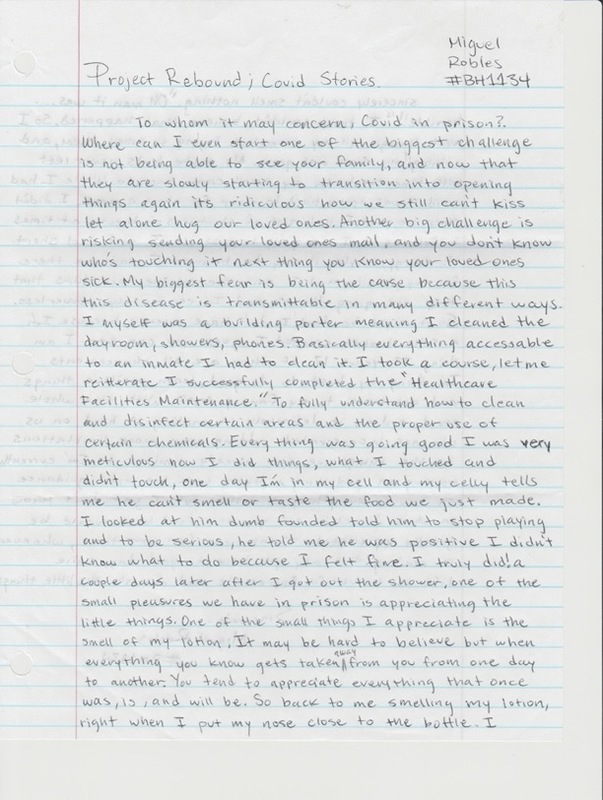 Miguel
Robles
#BH1134
Project Rebound; Covid Stories.
To whom it may concern, Covid in prison?
Where can I even start one of the biggest challenge
is not being able to see your family, and now that
they are slowly starting to transition into opening
things again it's ridiculous how we still can't kiss
let alone hug our loved ones. Another big challenge is
risking sending your loved ones mail, and you don't know
who's touching it next thing you know your loved ones
sick. My biggest fear is being the cause because this
this disease is transmittable in many different ways.
I myself was a building porter meaning I cleaned the
dayroom, showers, phones. Basically everything accessable
to an inmate I had to clean it. I took a course, let me
reitterate I successfully completed the "Healthcare
Facilities Maintenance." To fully understand how to clean
and disinfect certain areas and the proper use of
certain chemicals. Everything was going good I was very
meticulous how I did things, what I touched and
didn't touch, one day I'm in my cell and my celly tells
me he can't smell or taste the food we just made.
I looked at him dumb founded told him to stop playing
and to be serious, he told me he was positive I didn't
know what to do because I felt fine. I truly did! a
couple days later after I got out the shower, one of the
small pleasures we have in prison is appreciating the
little things. One of the small things I appreciate is the
smell of my lotion, It may be hard to believe but when
everything you know gets taken away from you from one day
to another. You tend to appreciate everything that once
was, is, and will be. So back to me smelling my lotion,
right when I put my nose close to the bottle. I